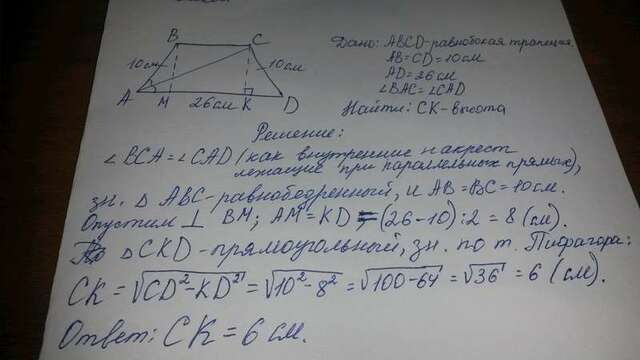 B
C
10см
10см
A
M
26см
K
D
Дано: ABCD-равнобокая трапеция
AB=CD=10см
AD=26см
∠BAC=∠CAD
Найти: CK-высота
Решение:
∠BCA=∠CAD (как внутренние накрест
лежащие при параллельных прямых),
зн. △ ABC-равнобедренный, и AB=BC=10см.
Опустим ⊥ BM; AM=KD=(26-10):2=8(см).
△CKD-прямоугольный, зн. по т. Пифагора:
CK=√CD²-KD²=√10²-8²=√100-64=√36=6(см).
Ответ: CK=6см.